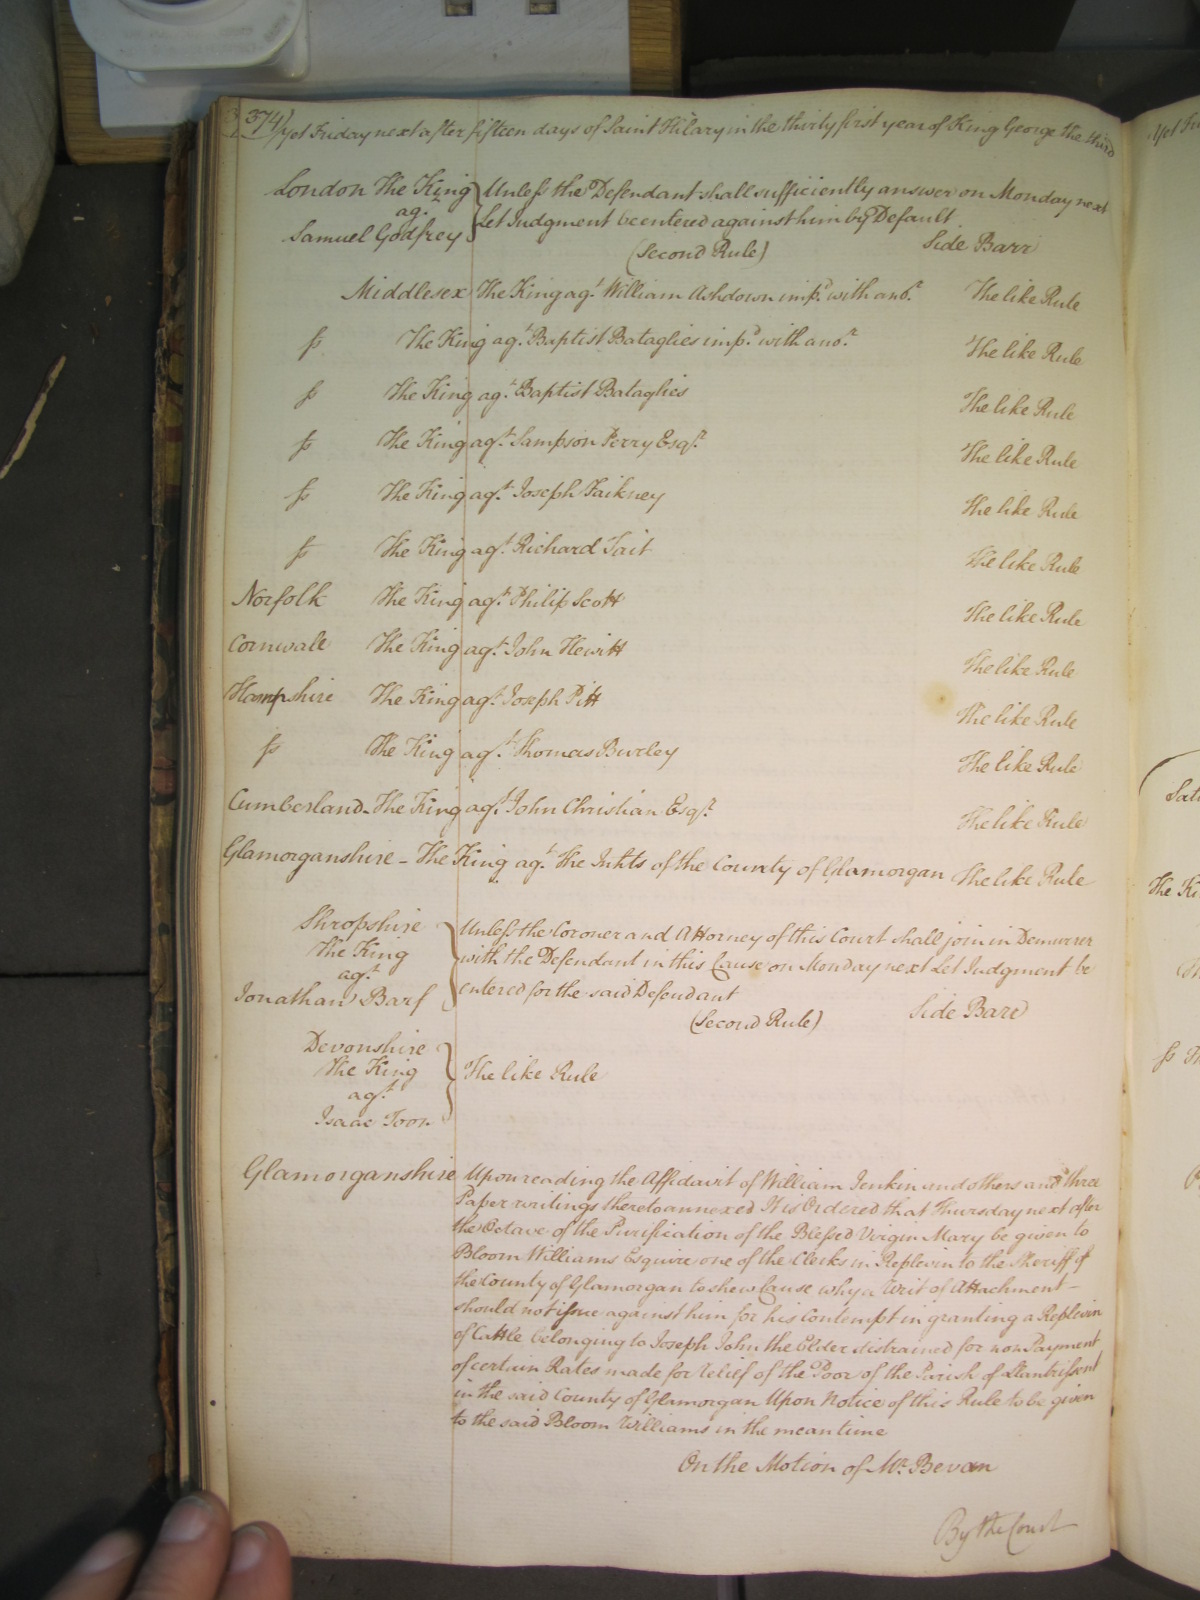 374) Yet Friday next after fifteen days of Saint Hilary in the thirty first year of King George the third
London The King Unless the Defendant shall sufficiently answer on Monday next
agt. Let Judgment be entered against him by Default
Samuel Godfrey
(Second Rule) Side Barr
Middlesex The King agt. William Ashdown impd. with anor. The like Rule
ss The King agt. Baptist Bataglies impd. with anor. The like Rule
ss The King agt. Baptist Bataglies The like Rule
ss The King agt. Sampson Perry Esqr. The like Rule
ss The King agt. Joseph Faikney The like Rule
ss The King agt. Richard Tait The like Rule
Norfolk The King agt. Philip Scott The like Rule
Cornwall The King agt. John Hewitt The like Rule
Hampshire The King agt. Joseph Pitt The like Rule
ss The King agt. Thomas Burley The like Rule
Cumberland - The King agt. John Christian Esqr. The like Rule
Glamorganshire - The King agt. the Inhts of the County of Glamorgan The like Rule
Shropshire Unless the Coroner and Attorney of this Court shall join in Demurrer
The King with the Defendant in this Cause on Monday next Let Judgment be
agt. entered for the said Defendant
Jonathan Barf
(Second Rule) Side Barr
Devonshire
The King The like Rule
agt.
Isaac Toon
Glamorganshire Upon reading the Affidavit of William Jenkin and others and three
Paper writings thereto annexed It is Ordered that Thursday next after
the Octave of the Purification of the Blessed Virgin Mary be given to
Bloom Williams Esquire one of the Clerks in Replevin to the Sheriff of
the County of Glamorgan to shew Cause why a Writ of Attachment -
should not issue against him for his Contempt in granting a Replevin
of Cattle belonging to Joseph John the Elder distrained for non Payment
of certain Rates made for relief of the Poor of the Parish of Llantrissent
in the said County of Glamorgan Upon Notice of this Rule to be given
to the said Bloom Williams in the mean time
On the Motion of Mr. Bevan
By the Court